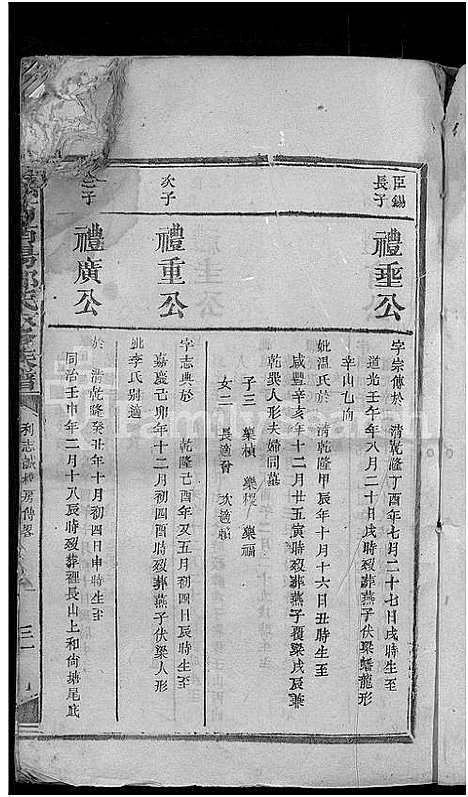 臣錫
長子
禮垂公
字宗傳於 清乾隆丁酉年七月二十七日戌時生至
道光壬午年八月二十日戌時歿葬燕子伏梁蟠龍形
辛山乙向
妣温氏於 清乾隆甲辰年十月十六日丑時生至
咸豐辛亥年十二月廿五寅時歿葬燕子覆梁戌辰兼
乾巽人形夫婦同墓
子三 樂楨 樂櫻 樂福
女二 長適曾 次適賴
次子
禮重公
字志典於 乾隆己酉年又五月初四日辰時生至
嘉慶己卯年十二月初四酉時歿葬燕子伏梁人形
妣李氏別適
子
禮廣公
於 清乾隆癸丑年十月初四日申時生至
同治壬申年二月十八辰時歿葬裡長山上和尚塘尾底
利志誠 房傳畧
三